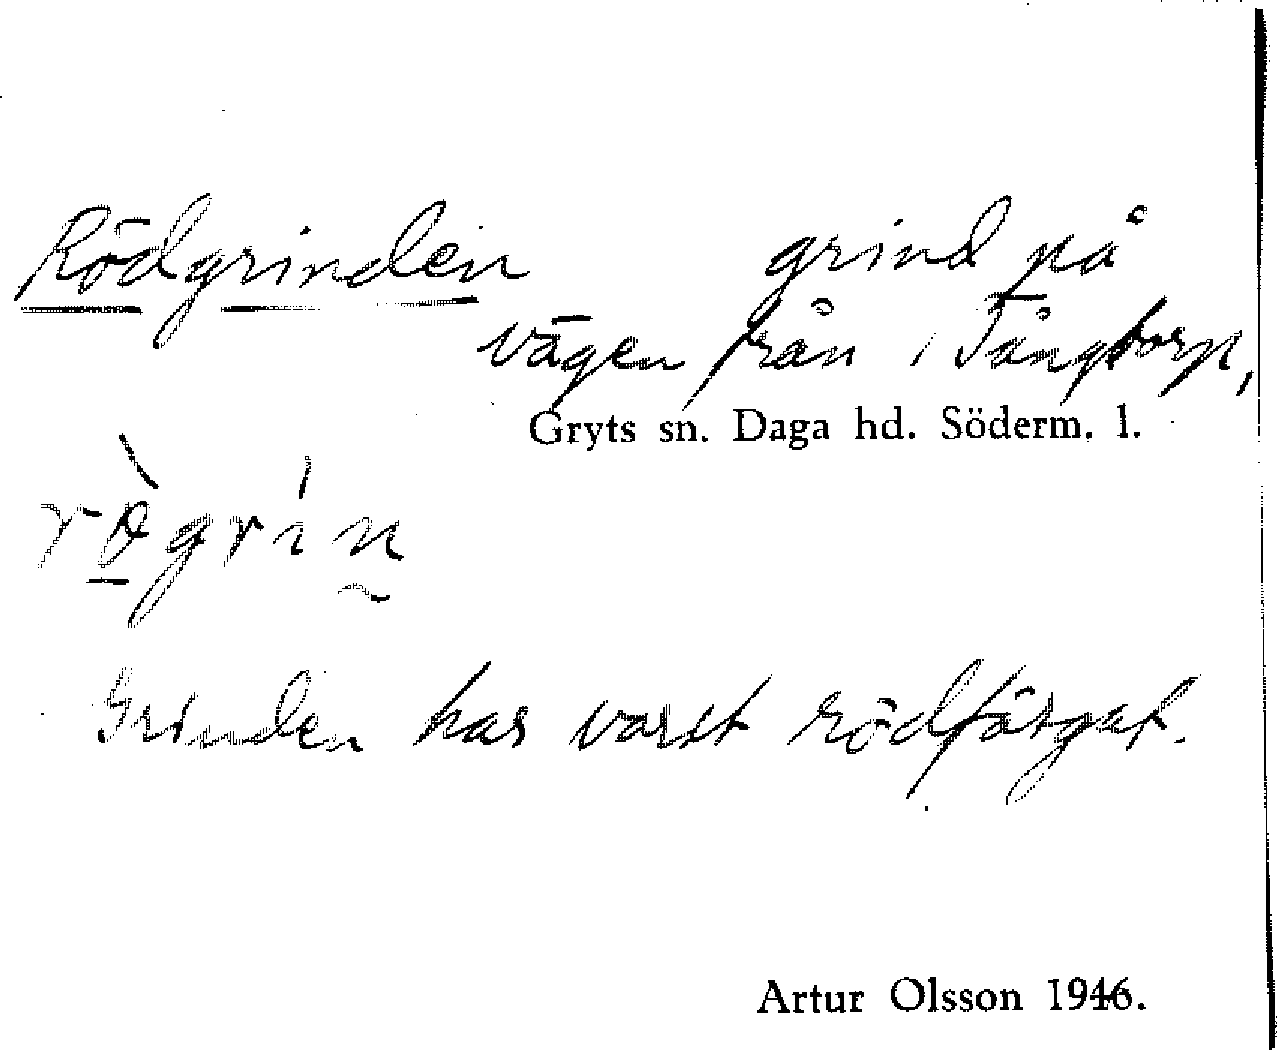 Rödgrinden grind på
vägen från Tångtorp,
Gryts sn. Daga hd. Söderm. l.
rø̀grín
Grinden har varit rödfärgat.
Artur Olsson 1946.